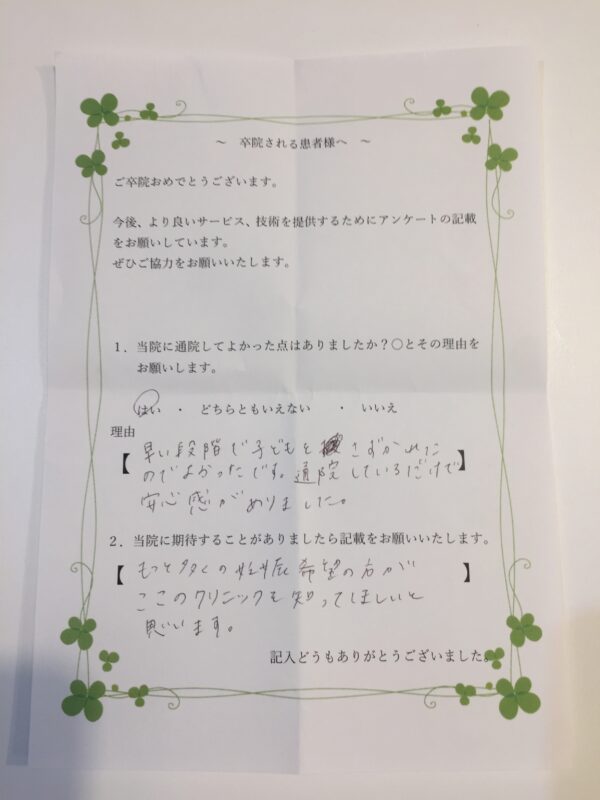 ～ 卒院される患者様へ ～
ご卒院おめでとうございます。
今後、より良いサービス、技術を提供するためにアンケートの記載
をお願いしています。
ぜひご協力をお願いいたします。
1．当院に通院してよかった点はありましたか？○とその理由を
お願いします。
はい ・ どちらともいえない ・ いいえ
理由
【早い段階で子どもを さずかれた】
のでよかったです。通院しているだけで
安心感がありました。
2．当院に期待することがありましたら記載をお願いいたします。
【もっと多くの妊娠希望の方が】
ここのクリニックを知ってほしいと
思います。
記入どうもありがとうございました。